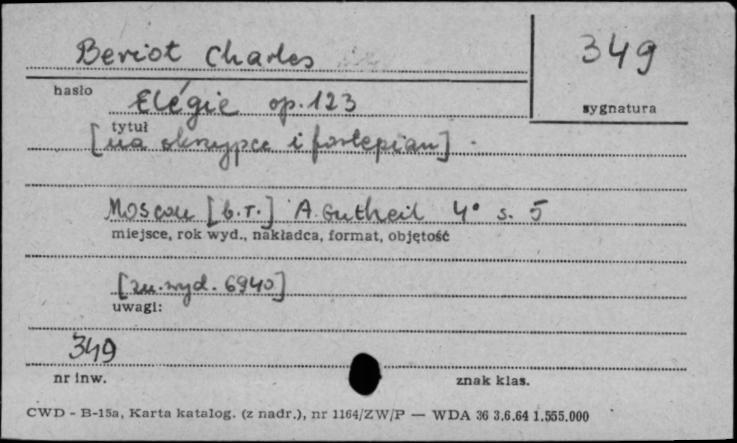 Beriot Charles
349
hasło
sygnatura
Elégie op. 123
tytuł
[na skrzypce i fortepian].
Moscou [b.r.] A. Gutheil 4° s. 5
miejsce, rok wyd., nakładca, format, objętość
[zn. wyd. 6940]
uwagi:
349
nr inw.
znak klas.
CWD - B-15a, Karta katalog. (z nadr.), nr 1164/ZW/P — WDA 36 3.6.64 1.555.000